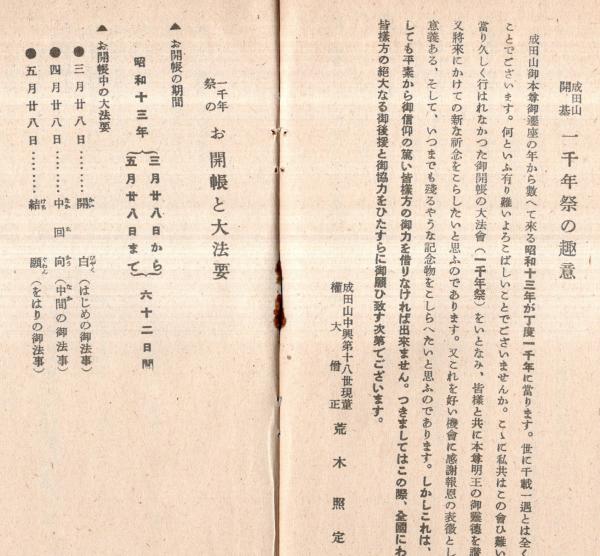 成田山
開基
一千年祭の趣意
成田山御本尊御遷座の年から數へて來る昭和十三年が丁度一千年に當ります。世に千載一遇とは全く
ことでございます。何といふ有り難いよろこばしいことでございませんか。こゝに私共はこの會ひ難い
當り久しく行はれなかつた御開帳の大法會(一千年祭)をいとなみ、皆樣と共に本尊明王の御靈德を讃
又將來にかけての新な祈念をこらしたいと思ふのであります。又これを好い機會に感謝報恩の表徵とし
意義ある、そして、いつまでも殘るやうな記念物をこしらへたいと思ふのであります。しかしこれは、
しても平素から御信仰の篤い皆樣方の御力を借りなければ出來ません。つきましてはこの際、全國にわ
皆樣方の絕大なる御後援と御協力をひたすらに御願ひ致す次第でございます。
成田山中興第十八世現董
權大僧正
荒木照定
一千年
祭の
お開帳と大法要
▲お開帳の期間
昭和十三年
三月廿八日から
五月廿八日まで
六十二日間
▲お開帳中の大法要
●三月廿八日………開白(はじめの御法事)
●四月廿八日………中回向(中間の御法事)
●五月廿八日………結願(をはりの御法事)